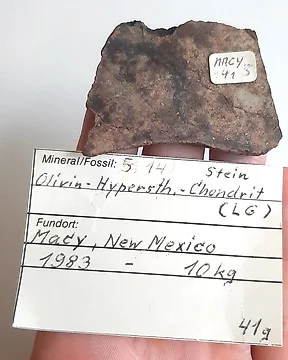 MACY
41
Mineral/Fossil: 5,14 Stein
Olivin-Hypersth.-Chondrit
(LG)
Fundort:
Macy, New Mexico
1983 - 10 kg
41g